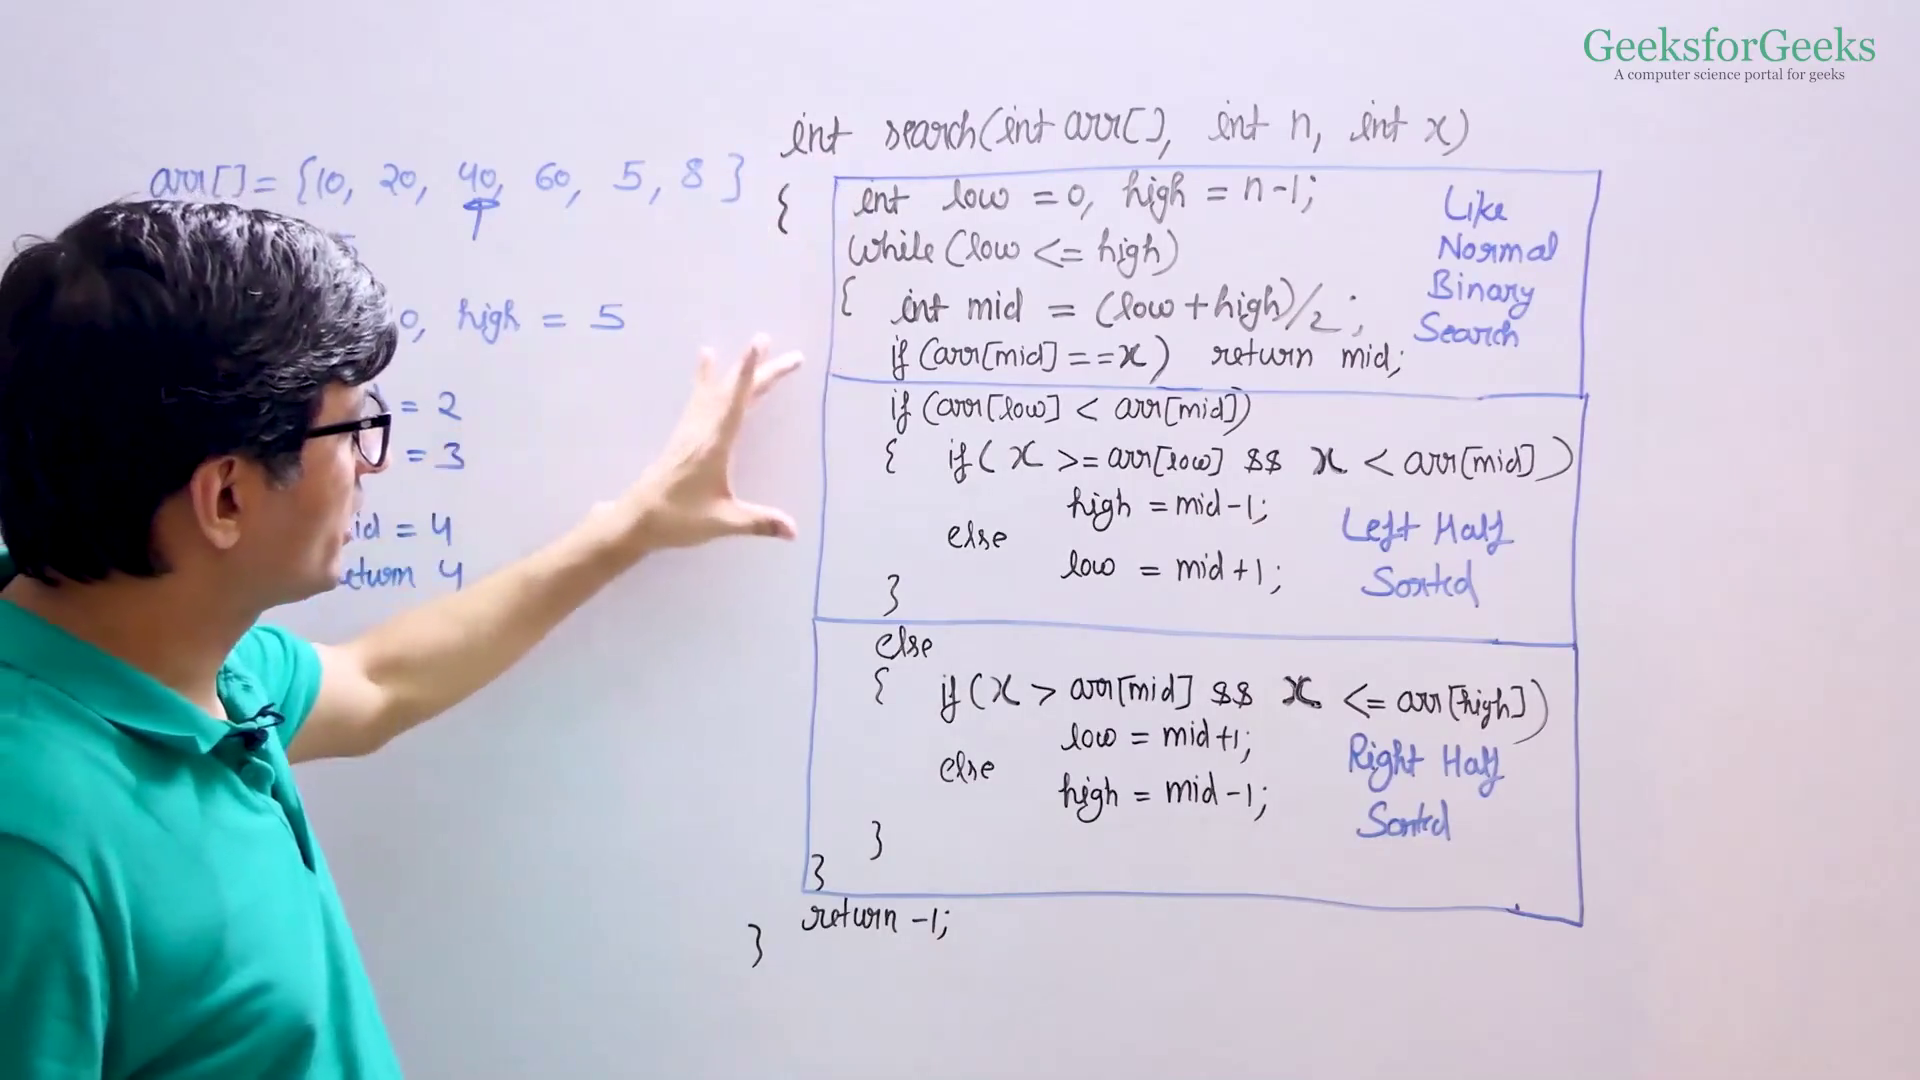 GeeksforGeeks
A computer science portal for geeks
arr[] = {10, 20, 40, 60, 5, 8}
0, high = 5
= 2
= 3
id = 4
eturn 4
int search(int arr[], int n, int x)
{ int low = 0, high = n-1;
while (low <= high)
{ int mid = (low + high)/2;
if (arr[mid] == x) return mid;
Like
Normal
Binary
Search
if (arr[low] < arr[mid])
{ if( x >= arr[low] && x < arr[mid])
high = mid-1;
else
low = mid+1;
}
Left Half
Sorted
else
{ if (x > arr[mid] && x <= arr[high])
low = mid+1;
else
high = mid-1;
}
}
Right Half
Sorted
return -1;
}